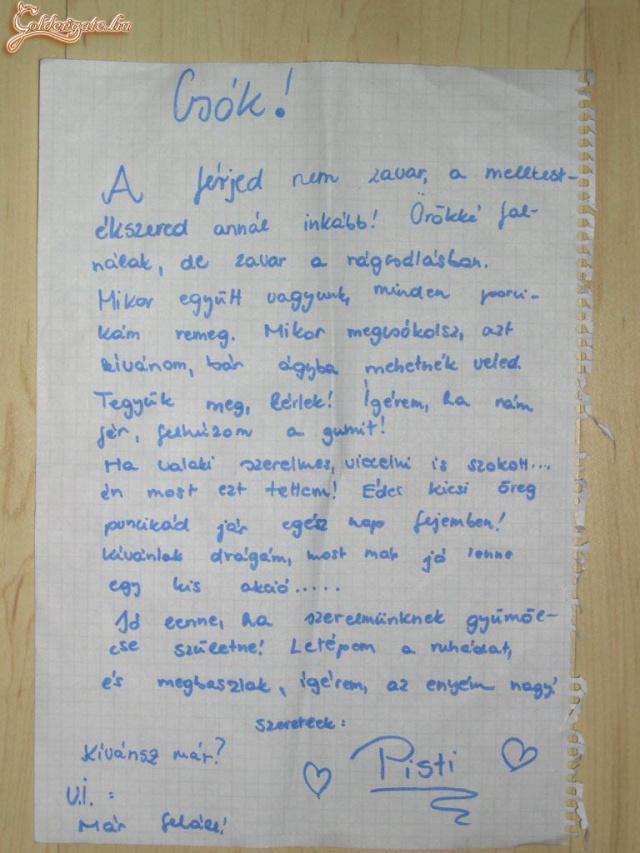 Goldengate.hu
Csók!
A férjed nem zavar, a melltest-
ékszered annál inkább! Örökké fal-
nálak, de zavar a rágcsálásban.
Mikor együtt vagyunk, minden porci-
kám remeg. Mikor megcsókolsz, azt
kívánom, bár ágyba mehetnék veled.
Tegyük meg, kérlek! Ígérem, ha rám
fér, felhúzom a gumit!
Ha valaki szerelmes, viccelni is szokott...
én most ezt tettem! Édes kicsi öreg
puncikád jár egész nap fejemben!
Kívánlak drágám, most már jó lenne
egy kis akció.....
Jó lenne, ha szerelmünknek gyümöl-
cse születne! Letépem a ruhádat,
és megbaszlak, ígérem, az enyém nagy!
szeretlek:
Kívánsz már?
Pisti
U.I.:
Már feláll!